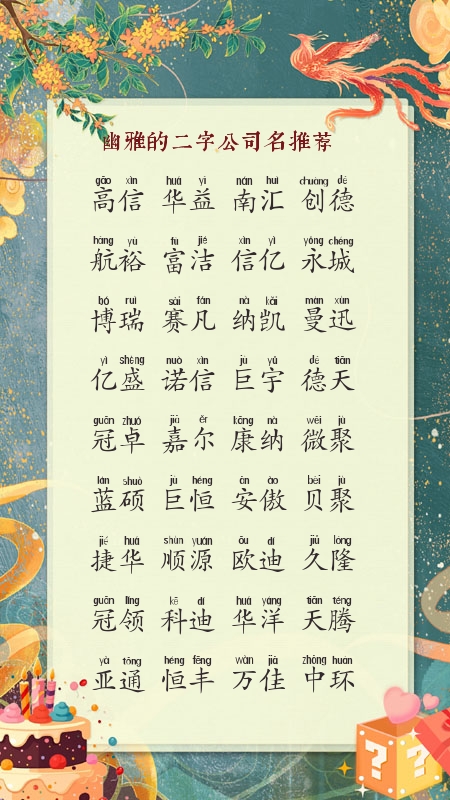 幽雅的二字公司名推荐
gāo xìn huá yì nán huì chuàng dé
高信 华益 南汇 创德
háng yù fù jié xìn yì yǒng chéng
航裕 富洁 信亿 永城
bó ruì sài fán nà kǎi màn xùn
博瑞 赛凡 纳凯 曼迅
yì shèng nuò xìn jù yǔ dé tiān
亿盛 诺信 巨宇 德天
guān zhuó jiā ěr kāng nà wēi jù
冠卓 嘉尔 康纳 微聚
lán shuò jù héng ān ào bèi jù
蓝硕 巨恒 安傲 贝聚
jié huá shùn yuán ōu dí jiǔ lóng
捷华 顺源 欧迪 久隆
guān lǐng kē dí huá yáng tiān téng
冠领 科迪 华洋 天腾
yà tōng héng fēng wàn jiā zhōng huán
亚通 恒丰 万佳 中环
? ?